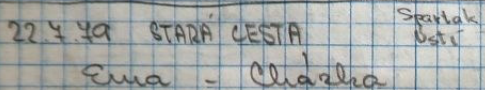 22.7.79 STARÁ CESTA Spartak Ústí
Ema - Cházka